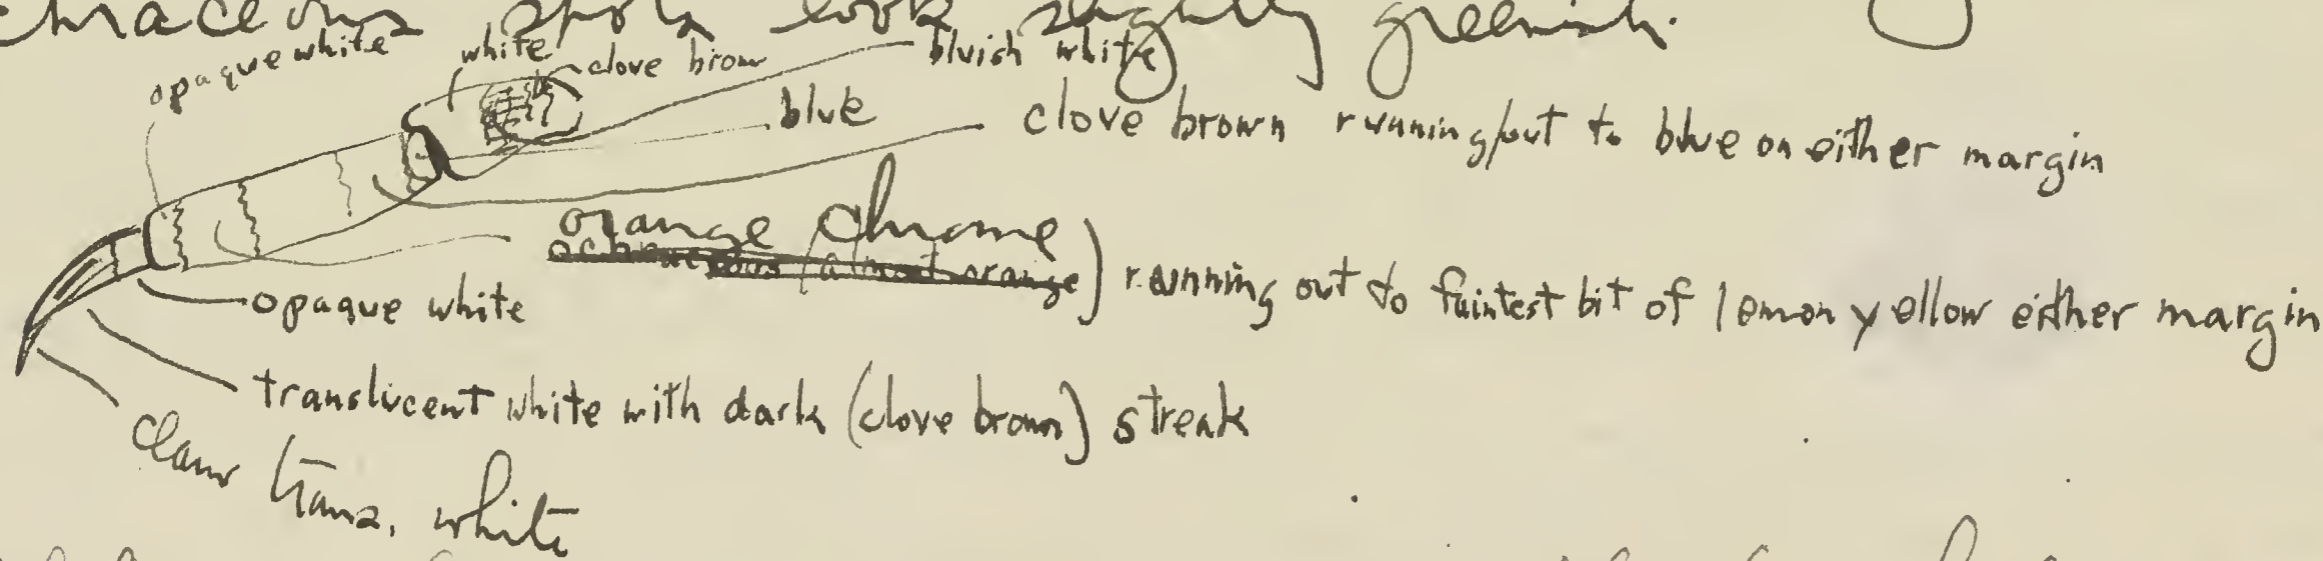 chraceous spots look slightly greenish.
opaque white
white
clove brown
bluish white
blue
clove brown running out to blue on either margin
orange chrome
ochraceous (almost orange) running out to faintest bit of lemon yellow either margin
opaque white
translucent white with dark (clove brown) streak
claws trans. white